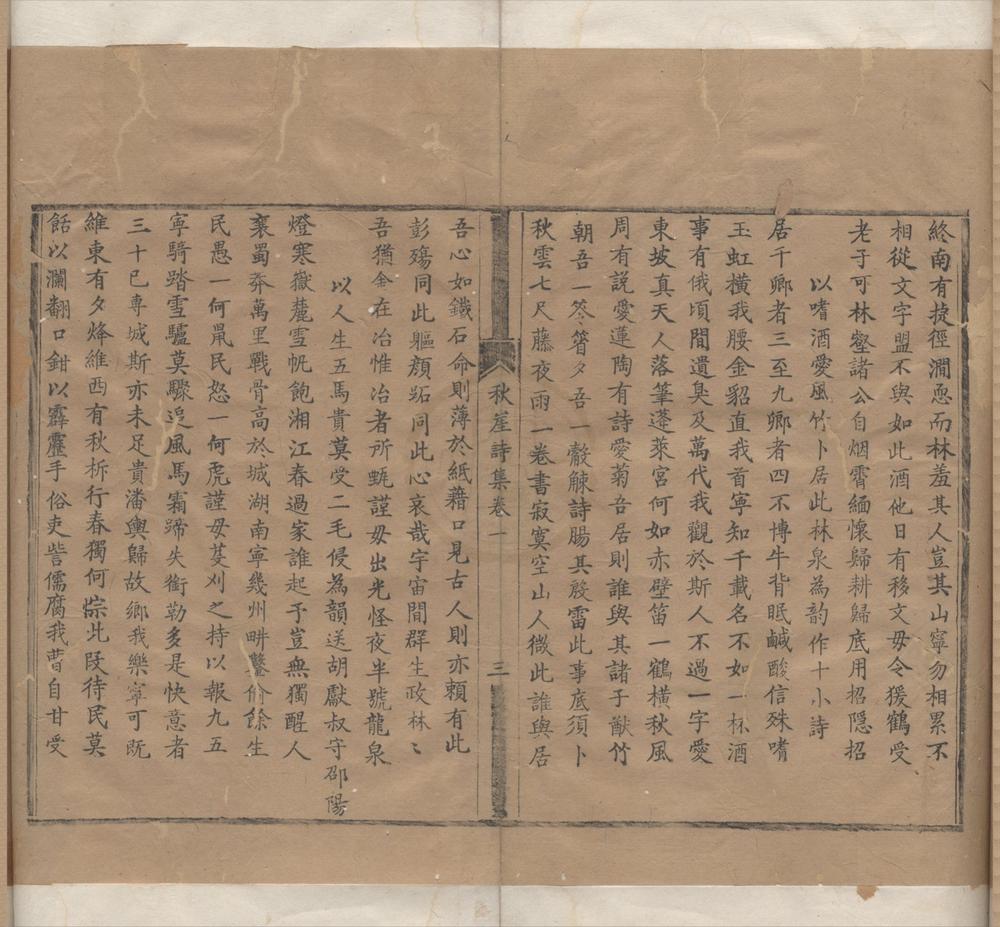 終南有捷徑澗愚而林羞其人豈其山寧勿相累不
相從文字盟不與如此酒他日有移文毋令猨鶴受
老子可林壑諸公自烟霄緬懷歸耕歸底用招隱招
以嗜酒愛風竹卜居此林泉為韵作十小詩
居千鄉者三至九卿者四不博牛背眠鹹酸信殊嗜
玉虹橫我腰金貂直我首寧知千載名不如一杯酒
事有俄頃間遺臭及萬代我觀於斯人不過一字愛
東坡真天人落筆蓬萊宮何如赤壁笛一鶴橫秋風
周有説愛蓮陶有詩愛菊吾居則誰與其諸子猷竹
朝吾一笭箵夕吾一觳觫詩腸其殷雷此事底須卜
秋雲七尺藤夜雨一卷書寂寞空山人微此誰與居
秋崖詩集卷一
三
吾心如鐵石命則薄於紙藉口見古人則亦賴有此
彭殤同此軀顏跖同此心哀哉宇宙間群生政林〻
吾猶金在冶惟冶者所甄謹毋出光怪夜半號龍泉
以人生五馬貴莫受二毛侵為韻送胡獻叔守邵陽
燈寒嶽麓雪帆飽湘江春過家誰起予豈無獨醒人
襄蜀莽萬里戰骨高於城湖南寧幾州畊鑿偷餘生
民愚一何鼠民怒一何虎謹毋芟刈之持以報九五
寧騎踏雪驢莫驟追風馬霜蹄失銜勒多是快意者
三十已專城斯亦未足貴潘輿歸故鄉我樂寧可既
維東有夕烽維西有秋柝行春獨何悰此段待民莫
餂以瀾翻口鉗以霹靂手俗吏訾儒腐我曹自甘受